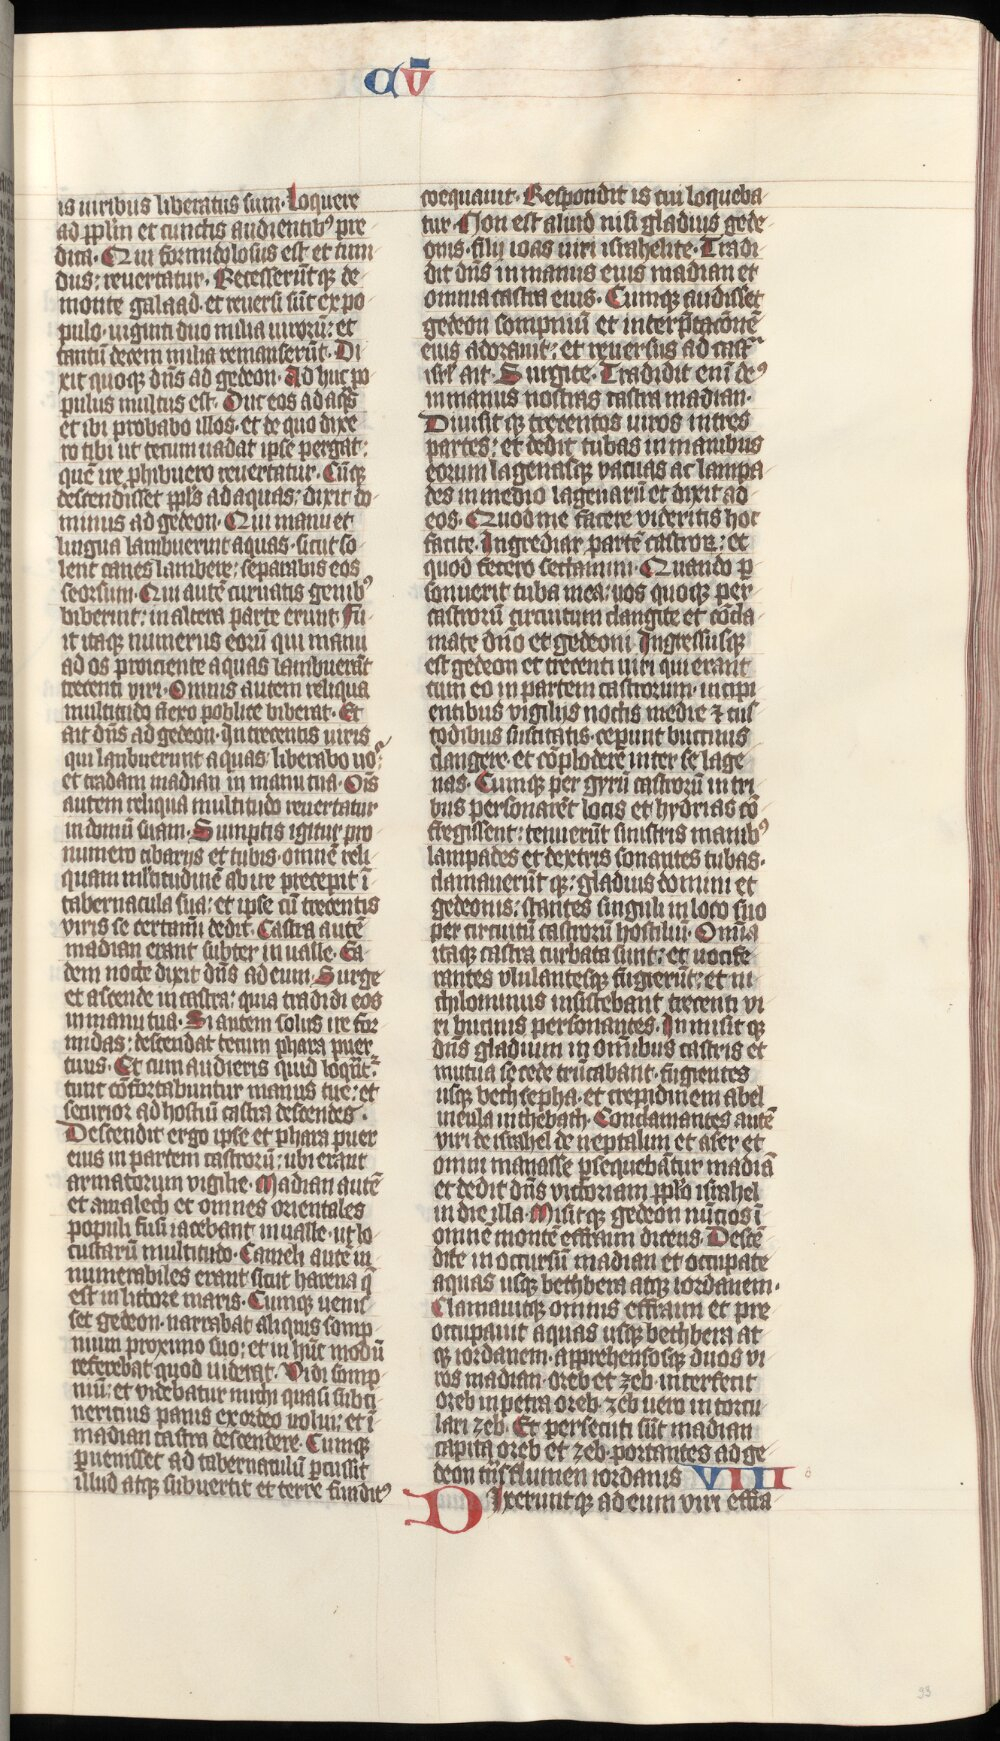 CV̄
is uiribus liberatus sum. Loquere
ad pplm̄ et cunctis audientibꝰ pre
dica. Qui formidolosus est et timi
dus: reuertatur. Recesserūtqꝫ de
monte galaad. et reuersi sūt ex po
pulo. uiginti duo milia uirorū: et
tantū decem milia remanserūt. Di
xit quoqꝫ dn̄s ad gedeon. Ad huc po
pulus multus est. Duc eos ad aq̄s
et ibi probabo illos. et de quo dixe
ro tibi ut tecum uadat ipse pergat:
quē ire ꝓhibuero reuertatur. Cūqꝫ
descendisset ppl̄s ad aquas: dixit do
minus ad gedeon. Qui manu et
lingua lambuerint aquas. sicut so
lent canes lambere: separabis eos
seorsum. Qui autē curuatis genibꝰ
biberint: in altera parte erunt. Fu
it itaqꝫ numerus eorū qui manu
ad os proiciente aquas lambuerāt
trecenti viri. Omnis autem reliqua
multitudo flexo poblite biberat. Et
ait dn̄s ad gedeon. In trecentis uiris
qui lanbuerunt aquas. liberabo uoˢ
et tradam madian in manu tua. Oīs
autem reliqua multitudo reuertatur
in domū suam. Sumptis igitur pro
numero cibarijs et tubis. omnē reli
quam ml̄titudinē abire precepit ī
tabernacula sua: et ipse cū trecentis
viris se certami dedit. Castra autē
madian erant subter in ualle. Ea
dem nocte dixit dn̄s ad eum. Surge
et ascende in castra: quia tradidi eos
in manu tua. Si autem solus ire for
midas: descendat tecum phara puer
tuus. Et cum audieris quid loqūt᷑
tunc cōfortabuntur manus tue: et
securior ad hostiū castra descendes.
Descendit ergo ipse et phara puer
eius in partem castrorū: ubi erant
armatorum vigilie. Madian autē
et amalech et omnes orientales
populi fusi iacebant in ualle. ut lo
custarū multitudo. Cameli autē in
numerabiles erant sicut harena q̄
est in littore maris. Cumqꝫ uenis
set gedeon. narrabat aliquis somp
nium proximo suo: et in hūc modū
referebat quod uiderat. Vidi somp
niū: et videbatur michi quasi subci
nericius panis ex ordeo uolui: et ī
madian castra descendere. Cumqꝫ
ꝑuenisset ad tabernaculū ꝑcussit
illud atqꝫ subuertit et terre funditꝰ
coequauit. Respondit is cui loqueba
tur. Non est aliud nisi gladius gede
onis. filij ioas uiri israhelite. Tradi
dit dn̄s in manus eius madian et
omnia castra eius. Cumqꝫ audisset
gedeon sompniū et interp̄tacōnē
eius adorauit: et reuersus ad cast᷑
isrl̄ ait. Surgite. Tradidit enī deꝰ
in manus nostras castra madian.
Diuisit qꝫ trecentos uiros in tres
partes: et dedit tubas in manibus
eorum lagenasqꝫ vacuas ac lampa
des in medio lagenarū et dixit ad
eos. Quod me facere videritis hoc
facite. Ingrediar partē castroꝝ: et
quod fecero sectamini. Quando ꝑ
sonuerit tuba mea: vos quoqꝫ per
castrorū circuitum clangite et cōcla
mate dn̄o et gedeoni. Ingressusqꝫ
est gedeon et trecenti uiri qui erant
cum eo in partem castrorum. incipi
entibus vigilijs noctis medie ⁊ cus
todibus suscitatis. ceperunt buccinis
clangere. et cōplodere inter se lage
nas. Cumqꝫ per gyrū castrorū in tri
bus personarēt locis et hydrias cō
fregissent: tenuerūt sinistris manibꝰ
lampades et dextris sonantes tubas.
clamauerūt qꝫ: gladius domini et
gedeonis: stantes singuli in loco suo
per circuitū castrorū hostiliū. Omnia
itaqꝫ castra turbata sunt: et vocife
rantes vlulantesqꝫ fugierūt: et ni
chilominus insistebant trecenti vi
ri bucinis personantes. Inmisit qꝫ
dn̄s gladium in omībus castris et
mutua se cede trucabant. fugientes
usqꝫ bethsepha. et crepidinem abel
meula in thebath. Conclamantes autē
viri de israhel de neptalim et aser et
omni manasse ꝑsequebātur madiā
et dedit dn̄s victoriam pplo israhel
in die illa. Misit qꝫ gedeon nūcios ī
omnē montē effraim dicens. Desce
dite in occursū madian et occupate
aquas usqꝫ bethbera atqꝫ iordanem.
Clamauitqꝫ omnis effraim et pre
occupauit aquas usqꝫ bethbera at
qꝫ iordanem. apprehensosqꝫ duos vi
ros madian. oreb et zeb. interfecit
oreb in petra oreb. zeb uero in torcu
lari zeb. Et persecuti sūt madian
capita oreb et zeb. portantes ad ge
deon trās flumen iordanis VIII
Dixeruntqꝫ ad eum viri effra
93